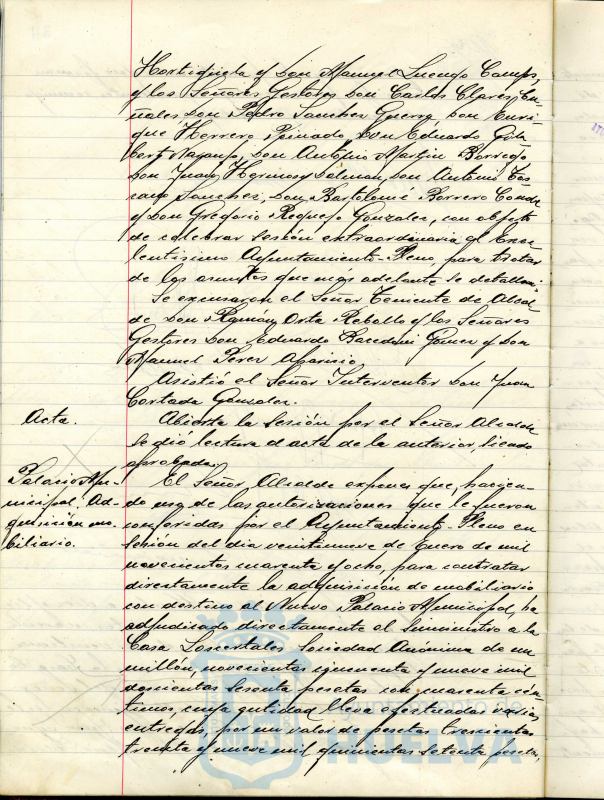 Hortigüela y Don Manuel Luengo Camps,
y los Señores Gestores Don Carlos Clares
Don Pedro Sanchez Guerra, Don Enri-
que Herrero Peinado, Don Eduardo Gila-
bert Naranjo, Don Antonio Martín Borrego
Don Juan Hermoso Doleman, Don Antonio Tos-
cano Sanchez, Don Bartolomé Borrero Conde
y Don Gregorio Requejo Gonzalez, con objeto
de celebrar sesión extraordinaria el Exce-
lentisimo Ayuntamiento-Pleno, para tratar
de los asuntos que más adelante se detallan.
Se excusaron el Señor Teniente de Alcal-
de Don Ramón Orta Rebollo y los Señores
Gestores Don Eduardo y Don
Manuel Perez Aparicio.
Asistió el Señor Interventor Don Juan
Cortada Gonzalez.
Acta.
Abierta la Sesión por el Señor Alcalde
se dió lectura al acta de la anterior, siendo
aprobada.
Palacio Mu-
nicipal. Ad-
quisición mo-
biliario.
El Señor Alcalde expone que, hacien-
do uso de las autorizaciones que le fueron
conferidas por el Ayuntamiento-Pleno en
sesión del dia veintinueve de Enero de mil
novecientos cuarenta y ocho, para contratar
directamente la adquisición de mobiliario
con destino al Nuevo Palacio Municipal, ha
adjudicado directamente el Suministro a la
Casa Loscertales Sociedad Anónima de un
millón, novecientas cincuenta y nueve mil
doscientas sesenta pesetas con cuarenta cén-
timos, cuya entidad lleva efectuadas varias
entregas, por un valor de pesetas trescientas
treinta y nueve mil quinientas setenta pesetas,
Ayuntamiento de
HUELVA